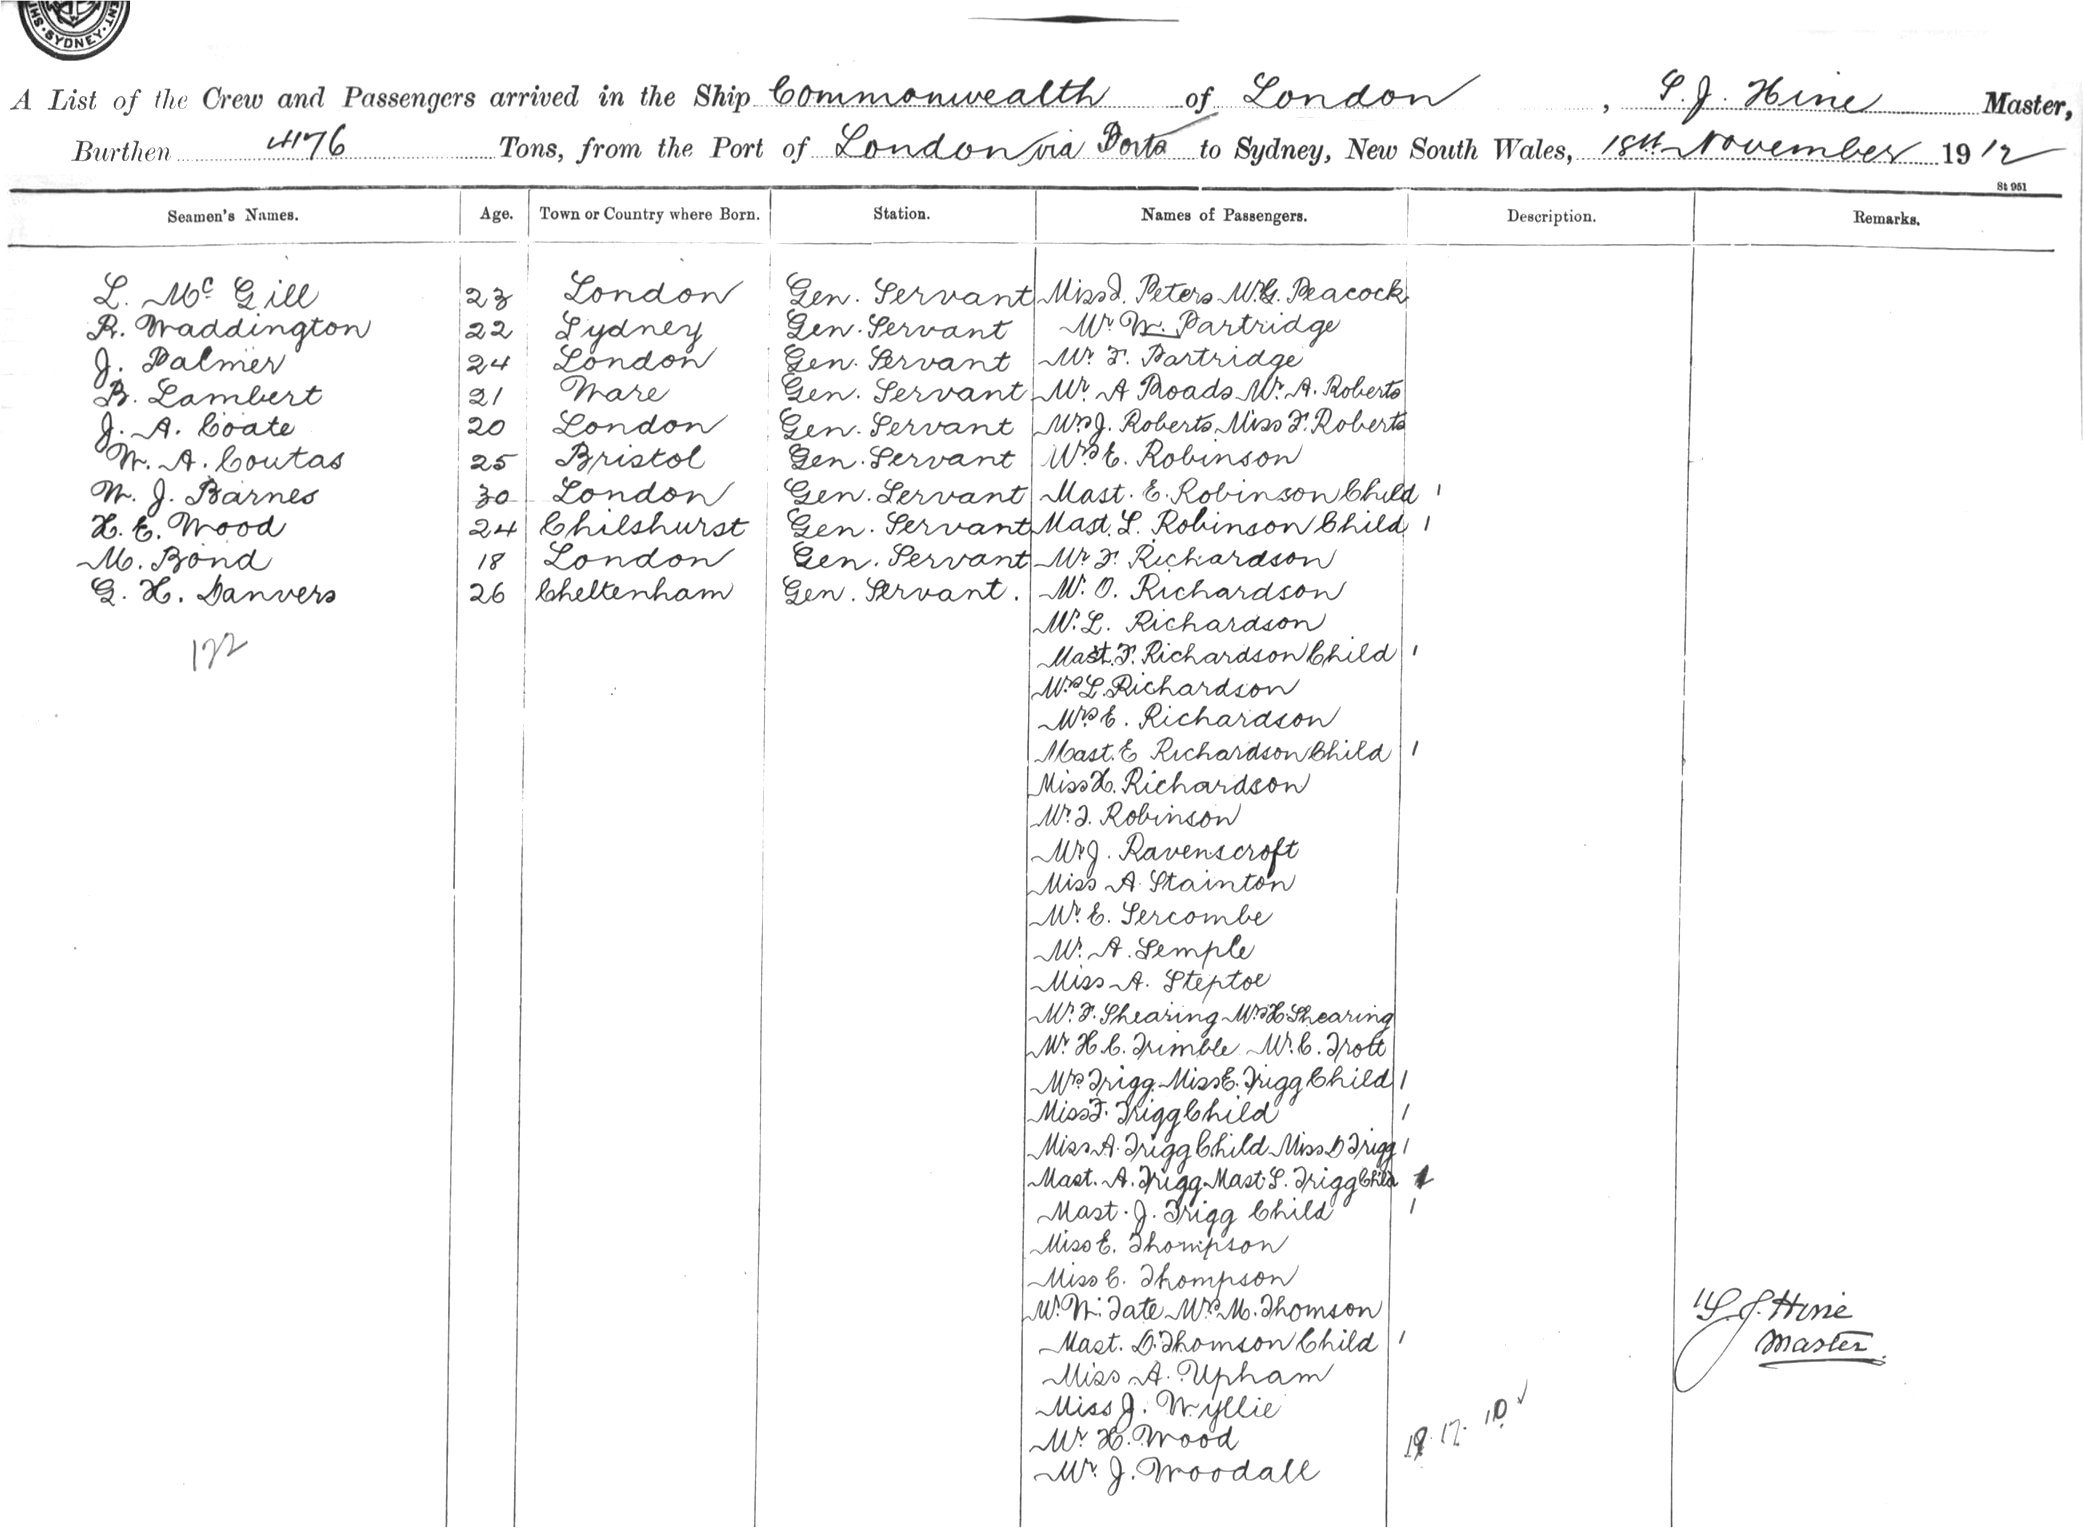 SYDNEY
A List of the Crew and Passengers arrived in the Ship Commonwealth of London, S. J. Hine Master,
Burthen 4176 Tons, from the Port of London via Ports to Sydney, New South Wales, 18th November 1912
St 951
Seamen's Names. Age. Town or Country where Born. Station. Names of Passengers. Description. Remarks.
L. Mc Gill 23 London Gen. Servant Miss I. Peters Mr. G. Peacock
R. Waddington 22 Sydney Gen. Servant Mr W. Partridge
J. Palmer 24 London Gen. Servant Mr. F. Partridge
B. Lambert 21 Ware Gen. Servant Mr. A Roads Mr. A. Roberts
J. A. Coate 20 London Gen. Servant Mrs J. Roberts Miss F. Roberts
W. A. Coutas 25 Bristol Gen. Servant Mrs E. Robinson
W. J. Barnes 30 London Gen. Servant Mast. E. Robinson Child 1
H. E. Wood 24 Chilshurst Gen. Servant Mast. L. Robinson Child 1
M. Bond 18 London Gen. Servant Mr F. Richardson
G. H. Danvers 26 Cheltenham Gen. Servant. Mr. O. Richardson
122 Mr. L. Richardson
Mast. F. Richardson Child 1
Mrs L. Richardson
Mrs E. Richardson
Mast. E Richardson Child 1
Miss H. Richardson
Mr. I. Robinson
Mr J. Ravenscroft
Miss A. Stainton
Mr. E. Sercombe
Mr. A. Semple
Miss A. Steptoe
Mr. F. Shearing Mrs H Shearing
Mr. H. C. Trimble Mr. C. Trott
Mrs Trigg Miss E. Trigg Child 1
Miss F. Trigg Child 1
Miss A. Trigg Child Miss D Trigg 1
Mast. A. Trigg Mast S. Trigg Child
Mast. J. Trigg Child 1
Miss E. Thompson
Miss C. Thompson
Mr. W. Tate Mrs M. Thomson S. J. Hine
Mast. D. Thomson Child 1 Master
Miss A. Upham
Miss J. Wyllie
Mr H. Wood 19. 17. 10
Mr. J. Woodall